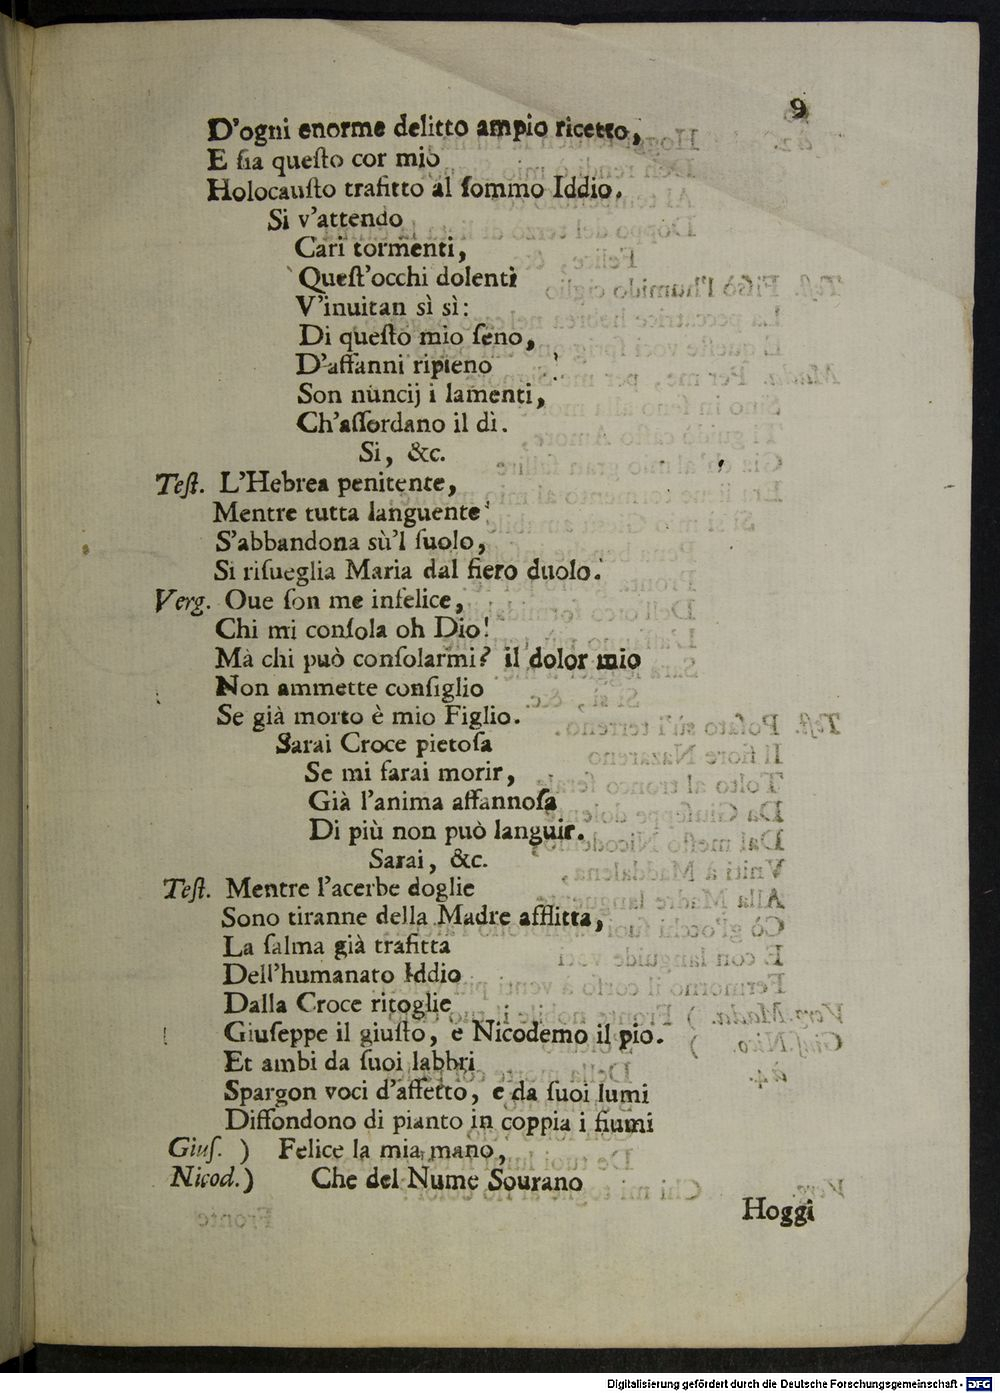 9
D'ogni enorme delitto ampio ricetto,
E ſia queſto cor mio
Holocauſto trafitto al ſommo Iddio.
Si v'attendo
Cari tormenti,
Queſt'occhi dolenti
V'inuitan sì sì:
Di queſto mio ſeno,
D'affanni ripieno
Son nuncij i lamenti,
Ch'aſſordano il dì.
Si, &c.
Teſt. L'Hebrea penitente,
Mentre tutta languente
S'abbandona sù'l ſuolo,
Si riſueglia Maria dal fiero duolo.
Verg. Oue ſon me infelice,
Chi mi conſola oh Dio!
Mà chi può conſolarmi? il dolor mio
Non ammette conſiglio
Se già morto è mio Figlio.
Sarai Croce pietoſa
Se mi farai morir,
Già l'anima affannoſa
Di più non può languir.
Sarai, &c.
Teſt. Mentre l'acerbe doglie
Sono tiranne della Madre afflitta,
La ſalma già trafitta
Dell'humanato Iddio
Dalla Croce ritoglie
Giuſeppe il giuſto, e Nicodemo il pio.
Et ambi da ſuoi labbri
Spargon voci d'affetto, e da ſuoi lumi
Diffondono di pianto in coppia i fiumi
Giuſ. ) Felice la mia mano,
Nicod.) Che del Nume Sourano
Hoggi
Digitalisierung gefördert durch die Deutsche Forschungsgemeinschaft - DFG